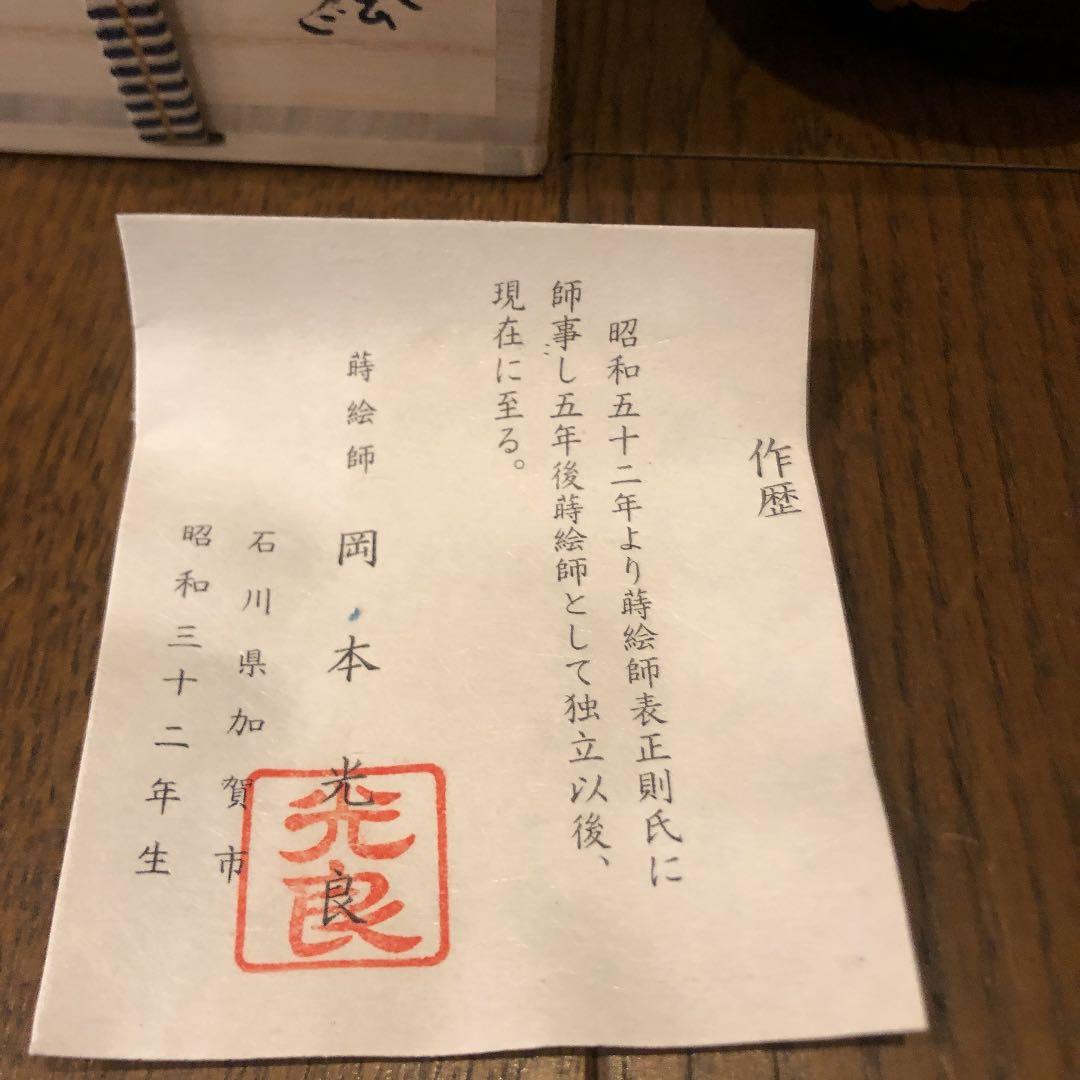 絵
作歴
昭和五十二年より蒔絵師表正則氏に
師事し五年後蒔絵師として独立以後、
現在に至る。
蒔絵師 岡本光良
石川県加賀市
昭和三十二年生
光良